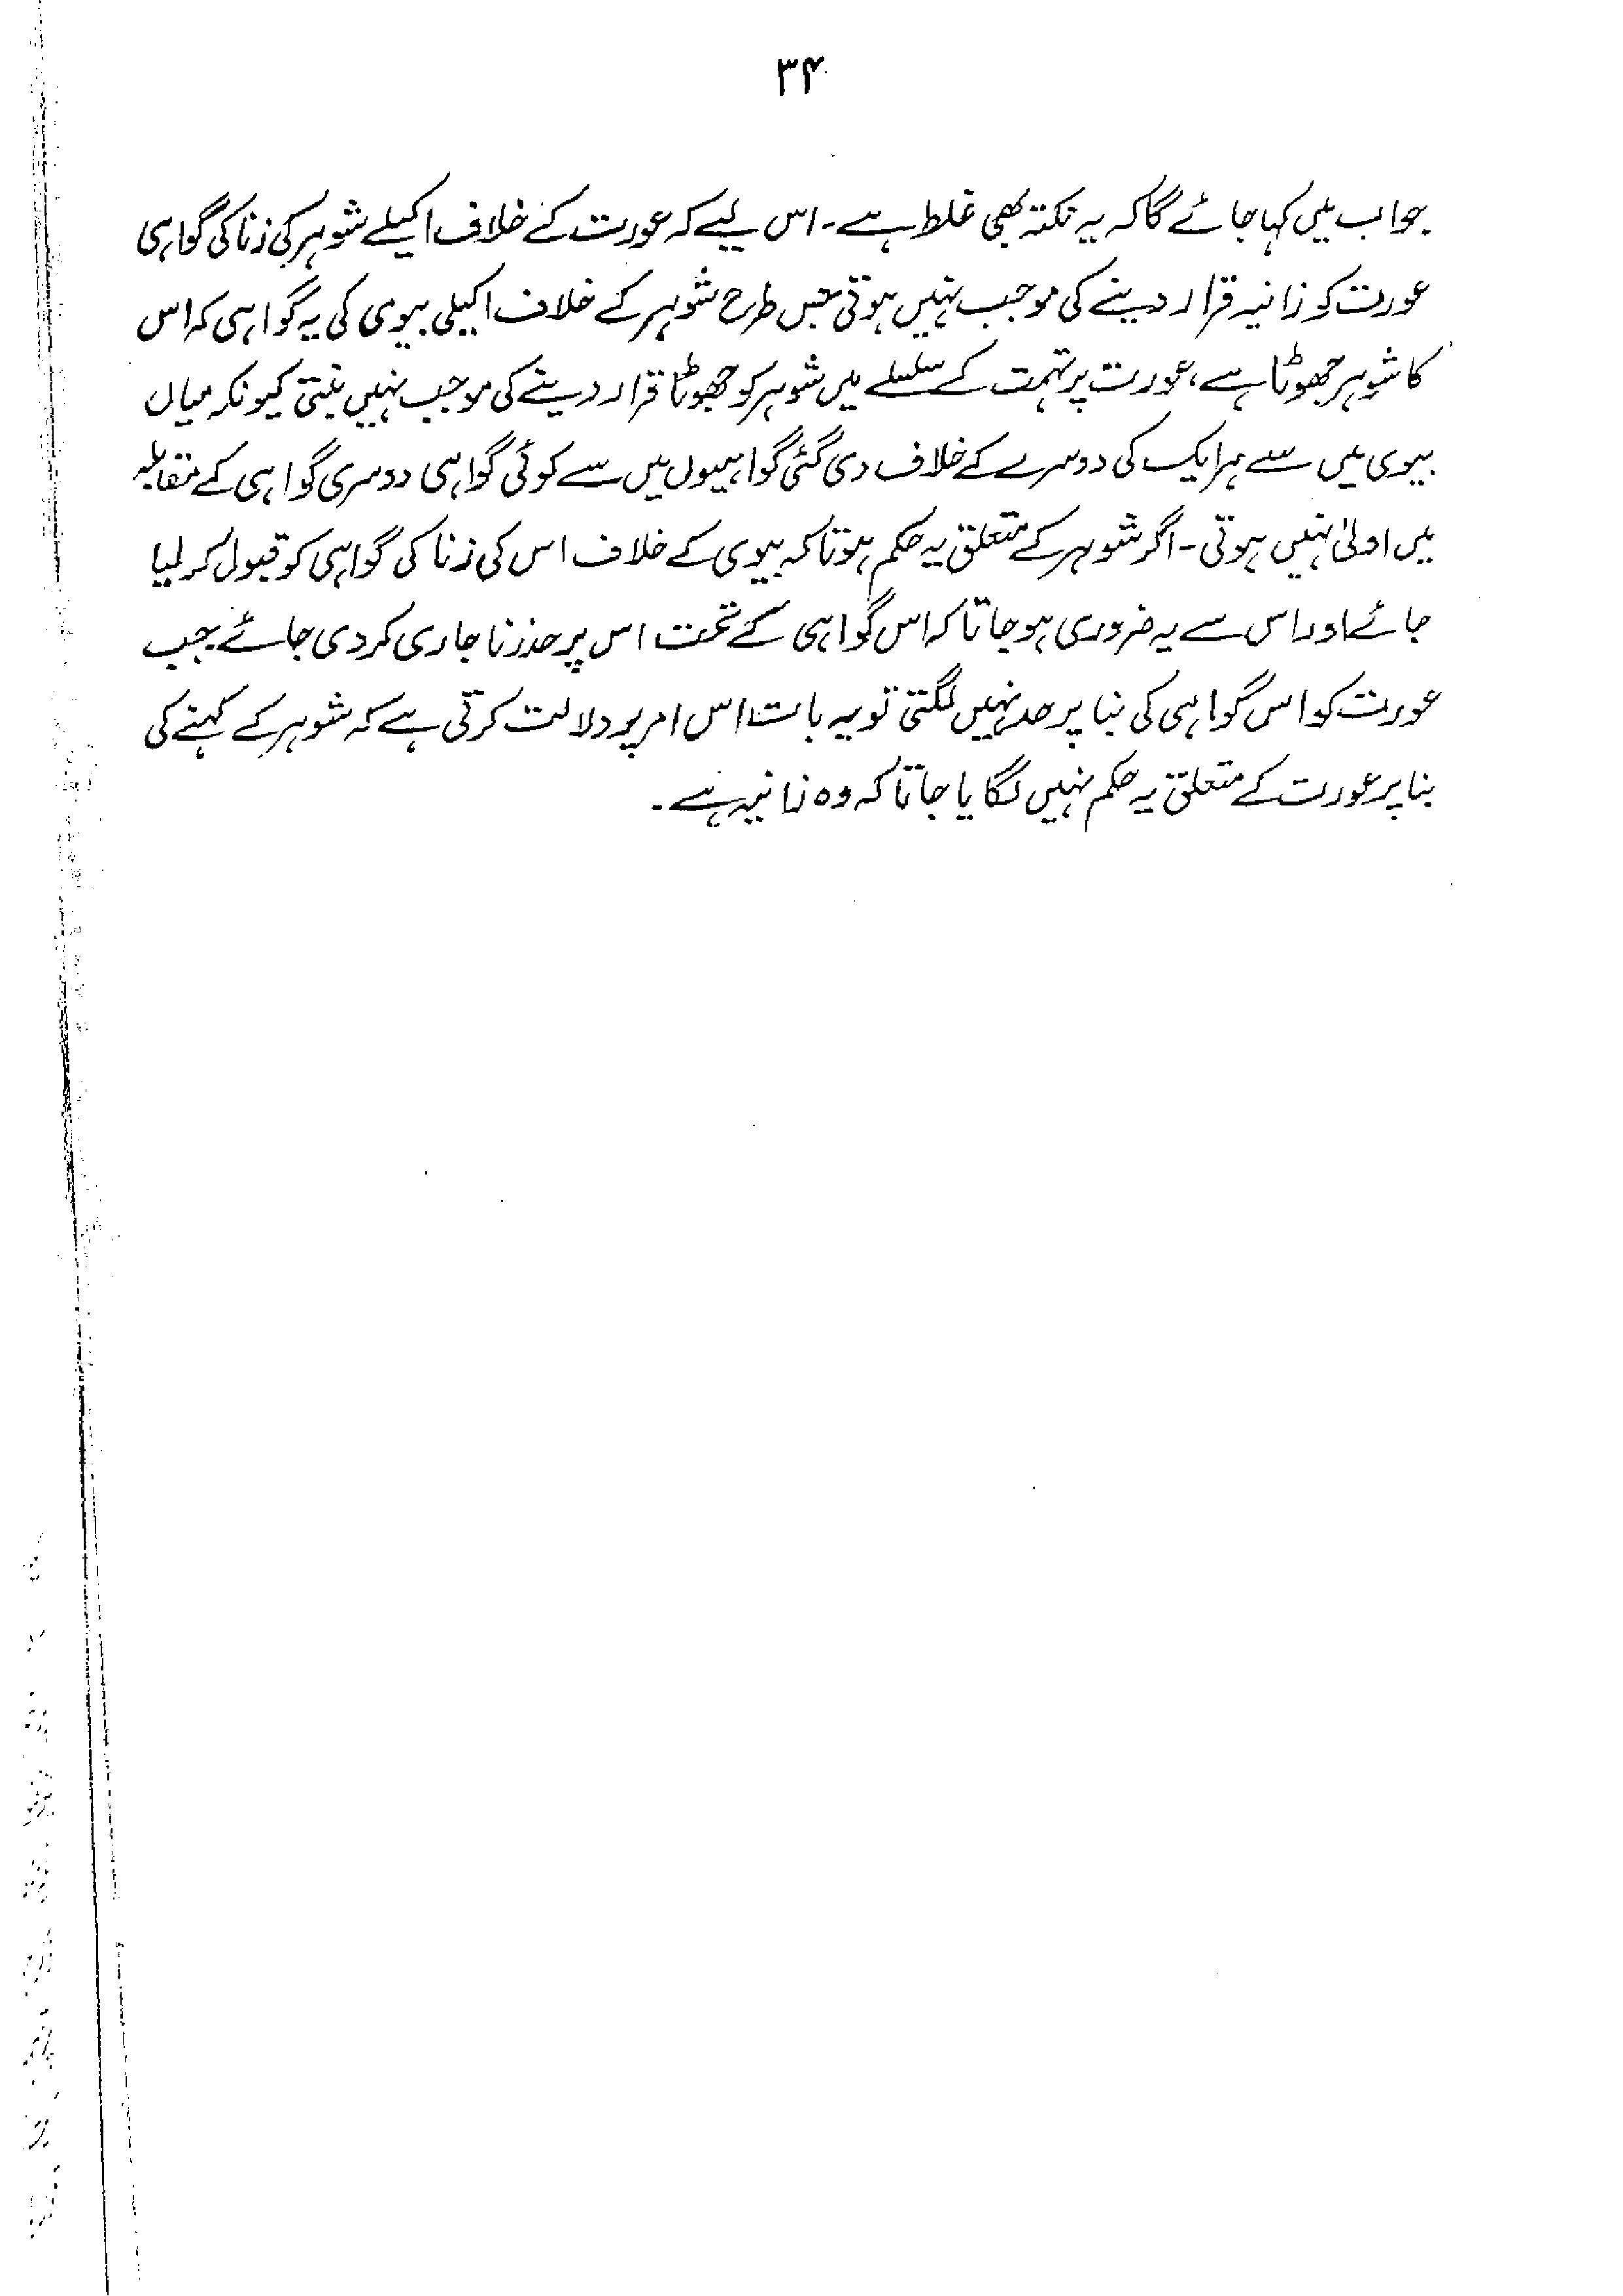 ۳۴
جواب میں کہا جائے گا کہ یہ نکتہ بھی غلط ہے۔ اس لیے کہ عورت کے خلاف اکیلے شوہر کی زنا کی گواہی
عورت کو زانیہ قرار دینے کی موجب نہیں ہوتی جس طرح شوہر کے خلاف اکیلی بیوی کی یہ گواہی کہ اس
کا شوہر جھوٹا ہے، عورت پر تہمت کے سلسلے میں شوہر کو جھوٹا قرار دینے کی موجب نہیں بنتی کیونکہ میاں
بیوی میں سے ہر ایک کی دوسرے کے خلاف دی گئی گواہیوں میں سے کوئی گواہی دوسری گواہی کے مقابلہ
میں اولیٰ نہیں ہوتی۔ اگر شوہر کے متعلق یہ حکم ہوتا کہ بیوی کے خلاف اس کی زنا کی گواہی کو قبول کر لیا
جائے اور اس سے یہ ضروری ہو جاتا کہ اس گواہی کے تحت اس پر حد زنا جاری کر دی جائے جب
عورت کو اس گواہی کی بنا پر حد نہیں لگتی تو یہ بات اس امر پر دلالت کرتی ہے کہ شوہر کے کہنے کی
بنا پر عورت کے متعلق یہ حکم نہیں لگایا جاتا کہ وہ زانیہ ہے۔